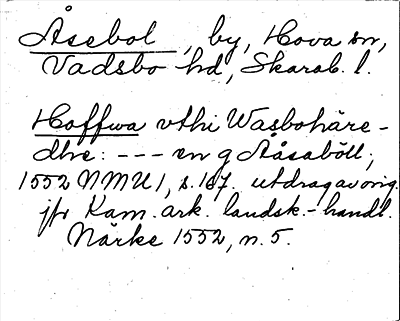 Åsebol, by, Hova sn,
Vadsbo hd, Skarab. l.
Hoffwa vthi Wasbohäre-
dhe: --- en g Aåsaböll;
1552 NMU 1, s. 167. utdrag av orig.
jfr Kam. ark. landsk.-handl.
Närke 1552, n. 5.